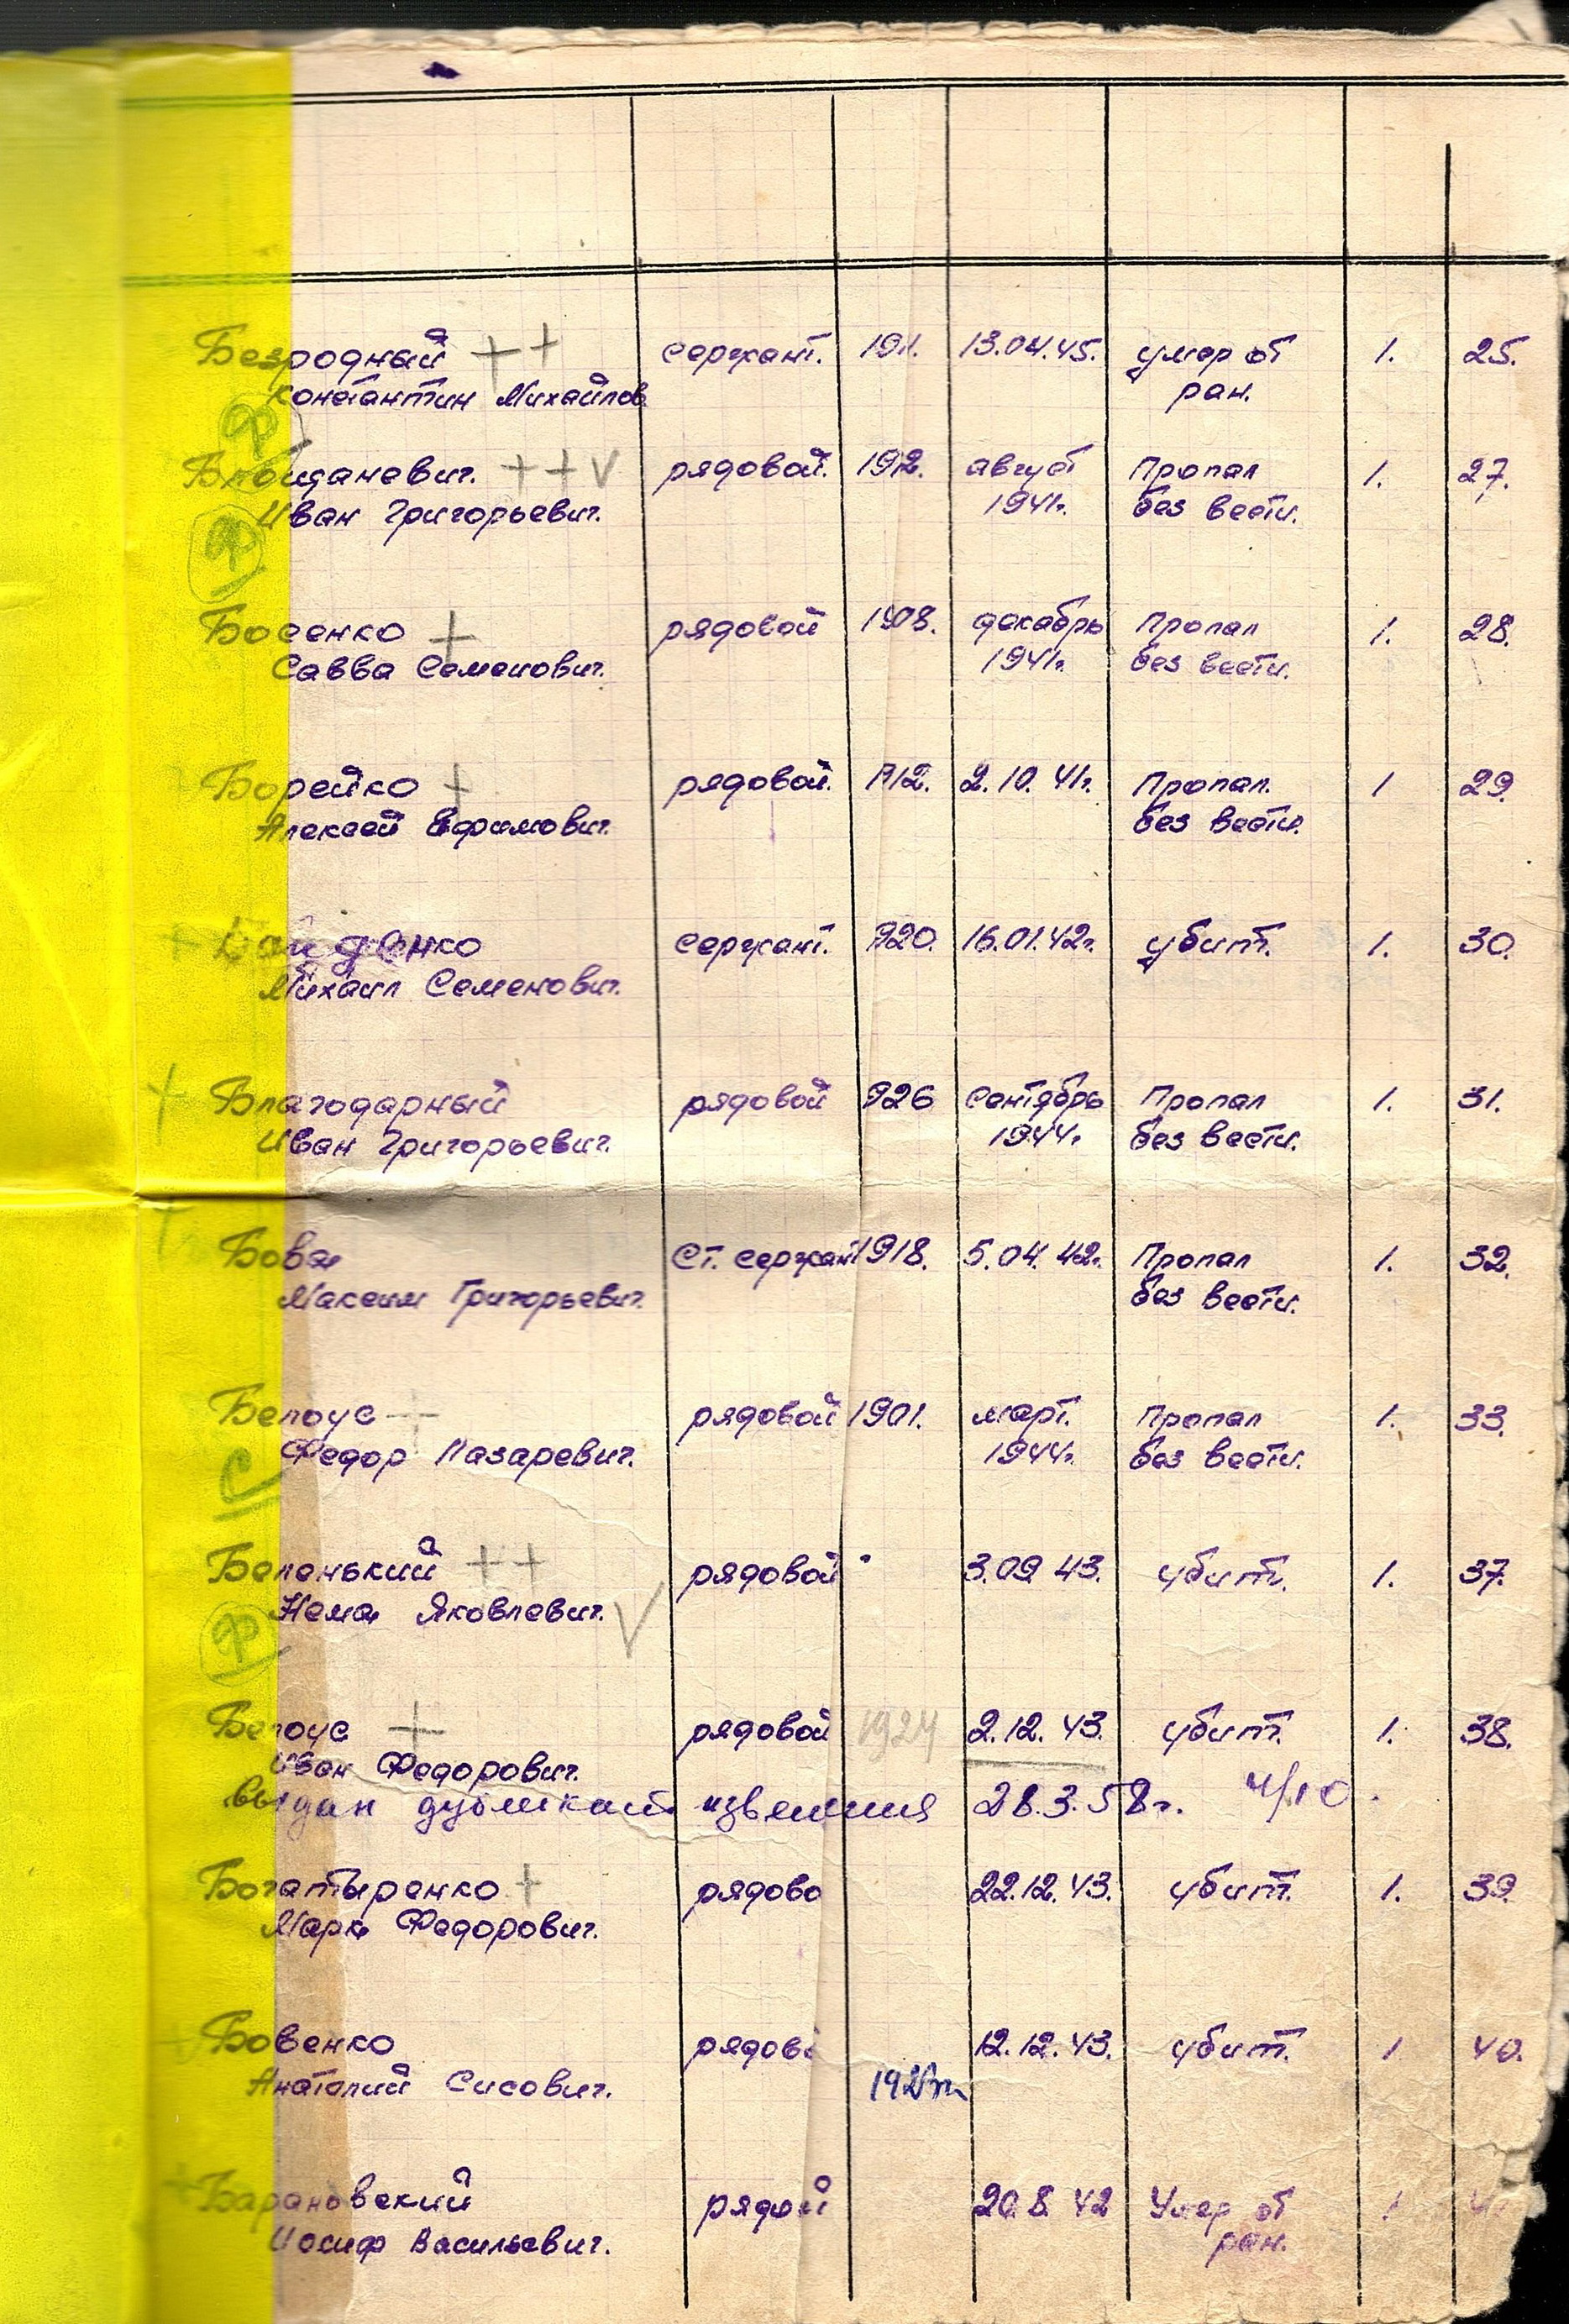 Безродный ++ сержант. 1911. 13.04.45. умер от 1. 25.
Константин Михайлов ран.
Ф
++V рядовой. 1912. август Пропал 1. 27.
Иван Григорьевич. 1941г. без вести.
Ф
Босенко + рядовой 1908. декабрь Пропал 1. 28.
Савва Семенович. 1941г. без вести.
Борейко + рядовой. 1912. 2.10.41г. Пропал. 1 29.
Алексей Ефимович. без вести.
+ сержант. 1920. 16.01.42г. убит. 1. 30.
Михаил Семенович.
+ Благодарный рядовой 926 Сентябрь Пропал 1. 31.
Иван Григорьевич. 1944г. без вести.
+
Бова Ст. сержант 1918. 5.04.42г. Пропал 1. 32.
Максим Григорьевич. без вести.
Белоус + рядовой 1901. март. Пропал 1. 33.
Федор Лазаревич. 1944г. без вести.
С
Беленький ++ рядовой 3.09.43. убит. 1. 37.
Нема Яковлевич. V
Ф
Белоус + рядовой 1924 2.12.43. убит. 1. 38.
Иван Федорович.
выдан дубликат извещения 28.3.58г. 4/10.
Богатыренко + рядово 22.12.43. убит. 1. 39.
Марк Федорович.
Бовенко рядово 12.12.43. убит. 1 40.
Анатолий Сисович.
+ Барановский рядой 20.8.42 Умер от 1
Иосиф Васильевич. ран.